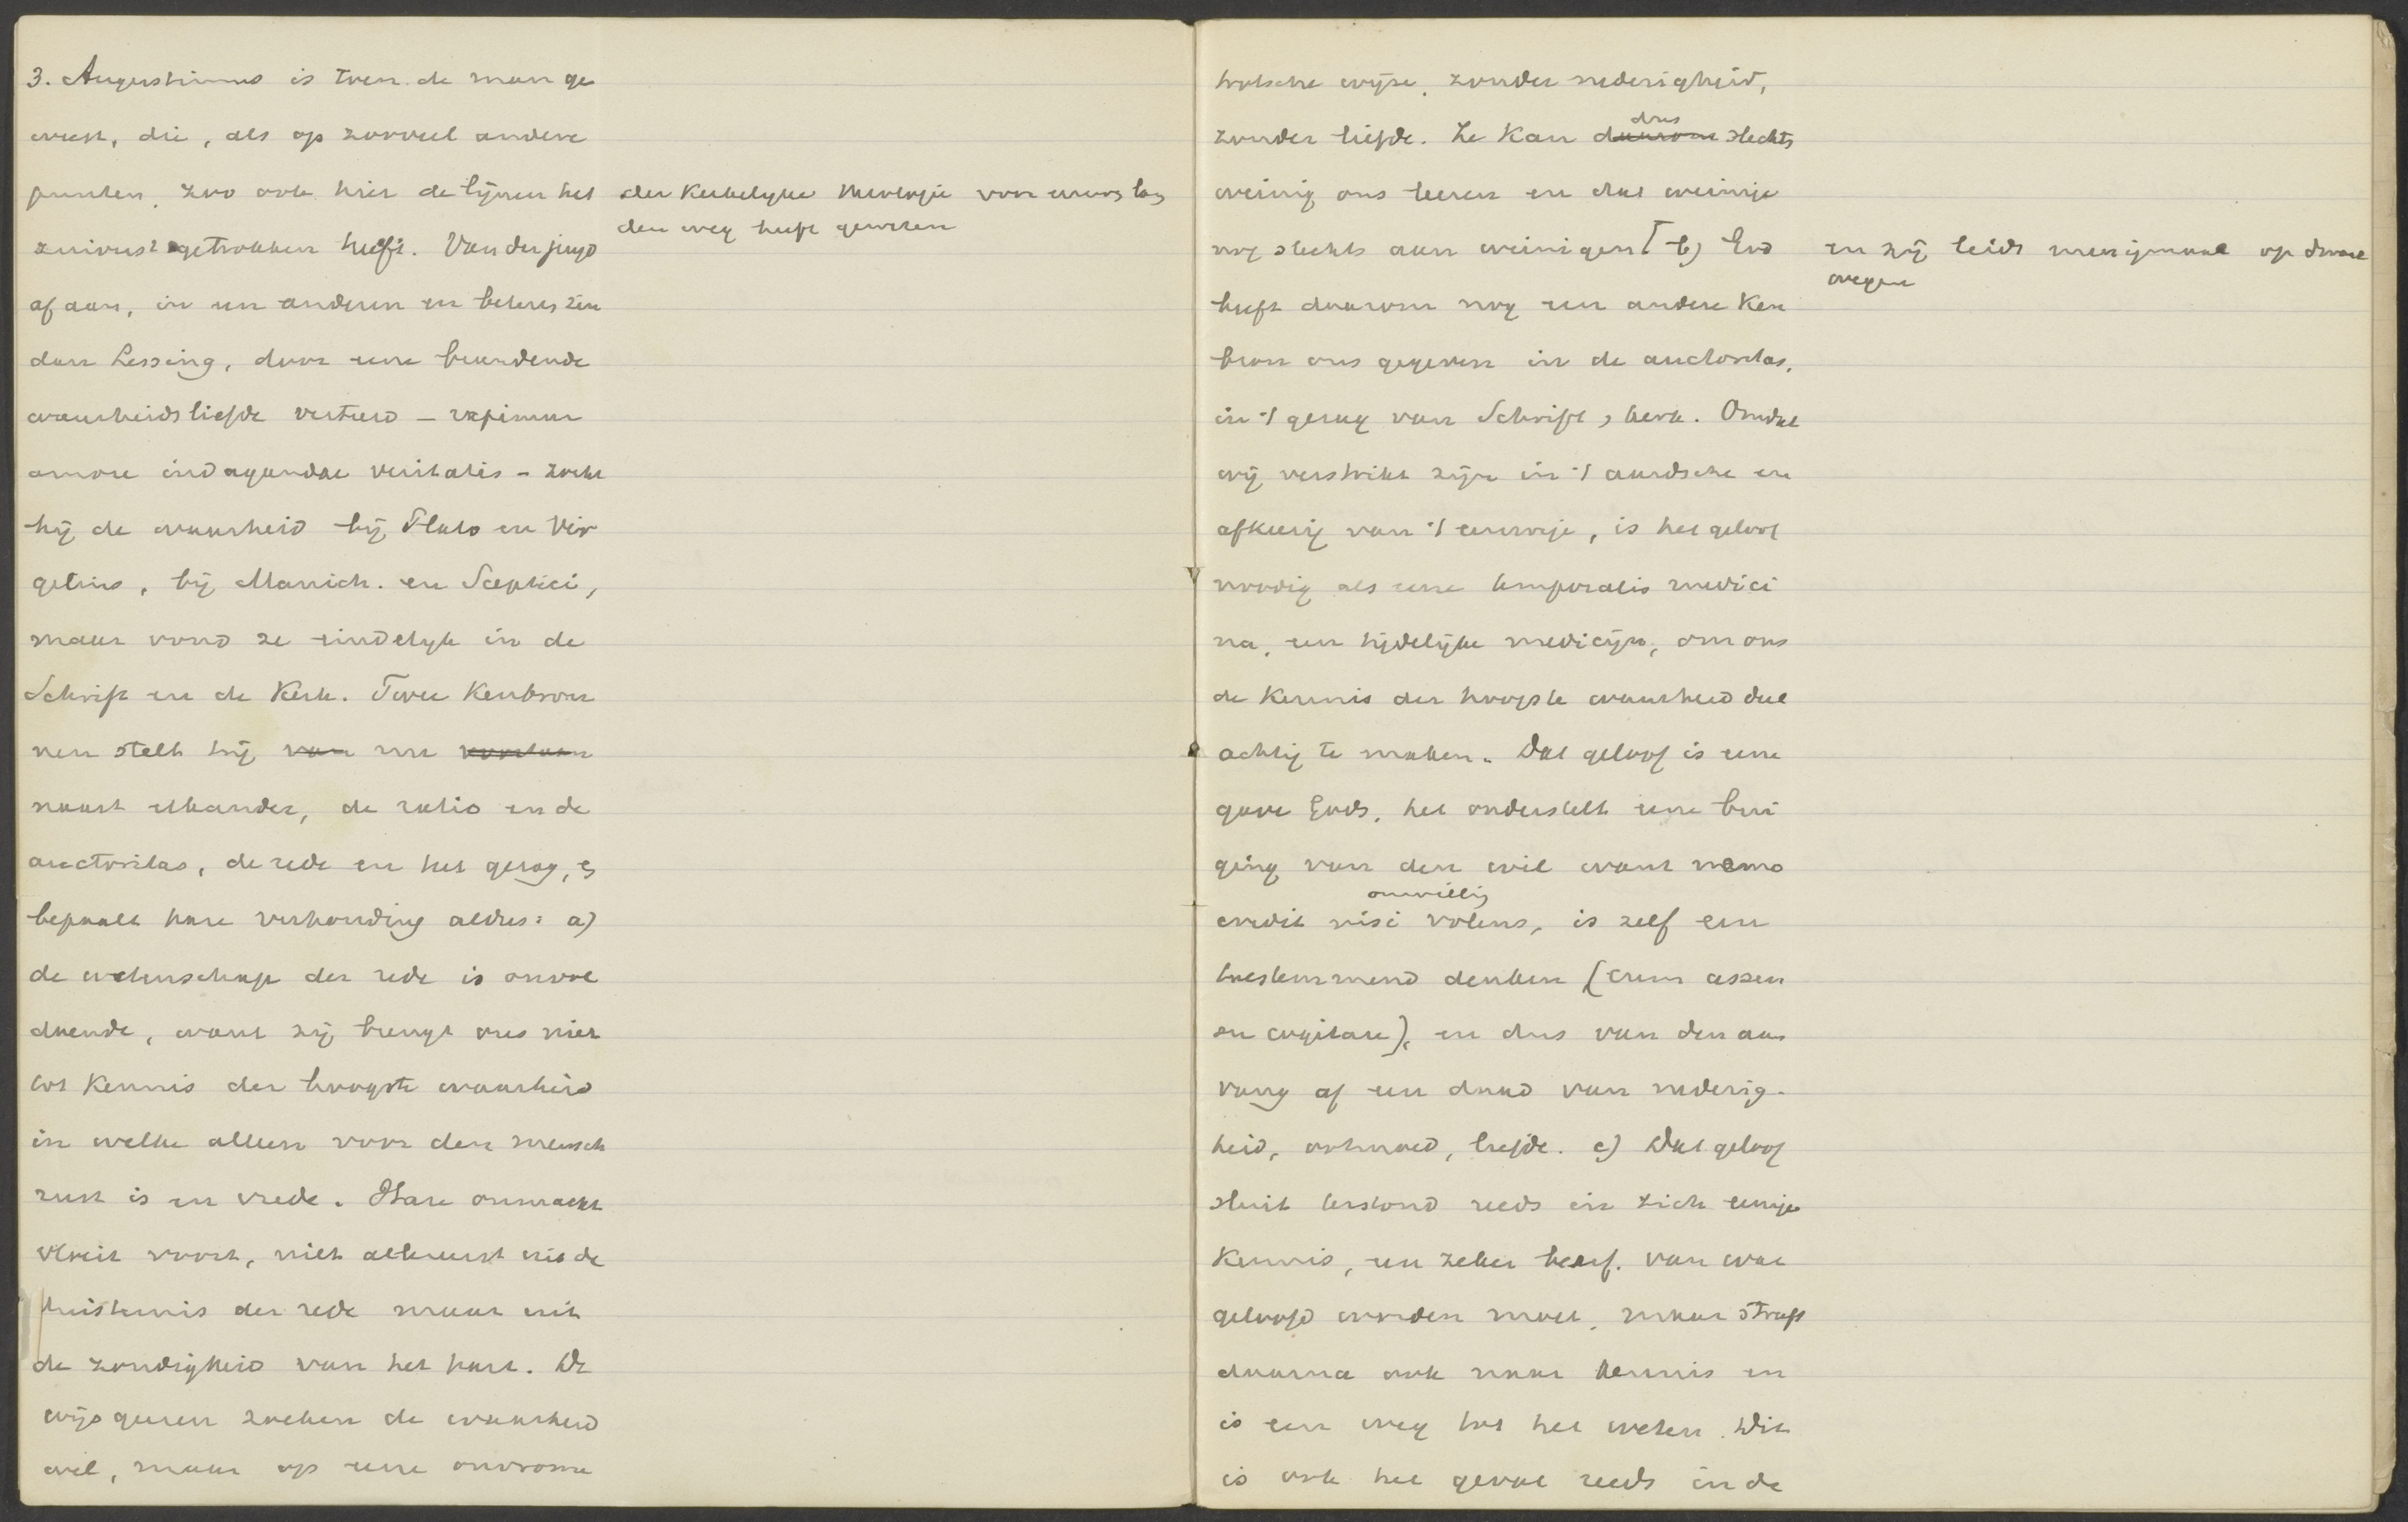 3. Augustinus is toen de man ge
weest, die, als op zooveel andere
punten, zoo ook hier de lijnen het
zuiverst getrokken heeft. Van der jeugd
af aan, in een anderen en beteren zin
dan Lessing, door eene brandende
waarheidsliefde verteerd - rapimur
amore indagandae veritatis - zocht
hij de waarheid bij Plato en Vir
gilius, bij Manich. en Sceptici,
maar vond ze eindelyk in de
Schrift en de Kerk. Twee Kenbron
nen stelt hij van nu voortaan
naast elkander, de ratio en de
auctoritas, de rede en het gezag, &
bepaalt hare verhouding aldus: a)
de wetenschap der rede is onvol
doende, want zij brengt ons niet
tot Kennis der hoogste waarheid
in welke alleen voor den mensch
rust is en vrede. Hare onmacht
vloeit voort, niet allereerst uit de
duisternis der rede maar uit
de zondigheid van het hart. De
wijsgeeren zoeken de waarheid
wel, maar op eene onvrome
der Kerkelyke theologie voor eeuwen lang
den weg heeft gewezen
trotsche wijze, zonder nederigheid,
zonder liefde. Ze Kan daarom dus slechts
weinig ons leeren en dat weinige
nog slechts aan weinigen [ b) God
heeft daarom nog een andere Ken
bron ons gegeven in de auctoritas,
in 't gezag van Schrift & kerk. Omdat
wij verstrikt zijn in 't aardsche en
afkeerig van 't eeuwige, is het geloof
noodig als eene temporalis medici
na, een tijdelijke medicijn, om ons
de Kennis der hoogste waarheid deel
achtig te maken. Dat geloof is eene
gave Gods, het onderstelt eene bui
ging van den wil want nemo
credit nisi volens, is zelf een
onwillig
toestemmend denken (cum assen
su cogitare), en dus van den aan
vang af een daad van nederig-
heid, ootmoed, liefde. c) Dat geloof
sluit terstond reeds in zich eenige
Kennis, een zeker besef van wat
geloofd worden moet, maar streeft
daarna ook naar kennis en
is een weg tot het weten. Dit
is ook het geval reeds in de
en zij leidt menigmaal op dwaal
wegen